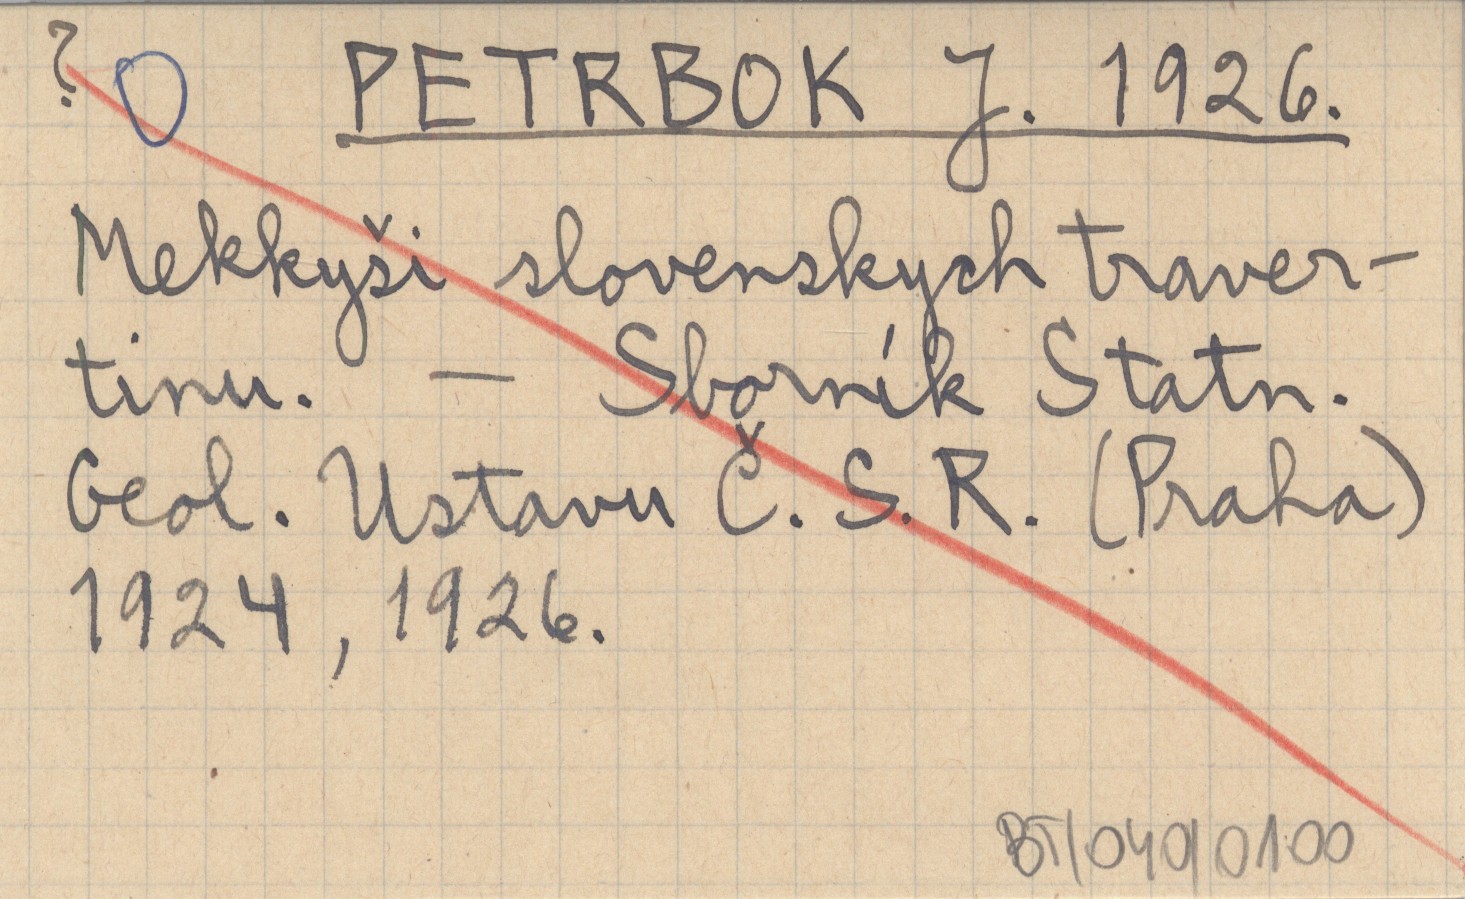 ? O PETRBOK J. 1926.
Mekkyši slovenskych traver-
tinu. — Sborník Statn.
Geol. Ustavu Č. S. R. (Praha)
1924, 1926.
BT/040/0100